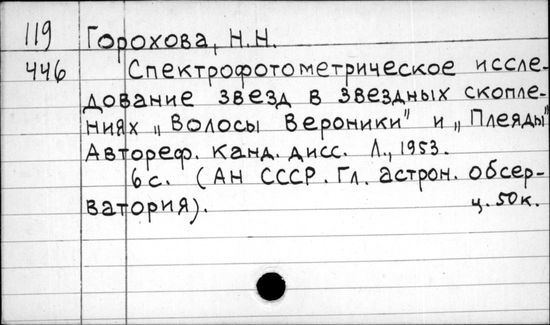 119 Горохова, Н.Н.
446 Спектрофотометрическое иссле-
дование звезд в звездных скопле-
ниях „Волосы Вероники" и „Плеяды"
Автореф. канд. дисс. Л., 1953.
6 с. (АН СССР. Гл. астрон. обсер-
ватория). ц. 50 к.